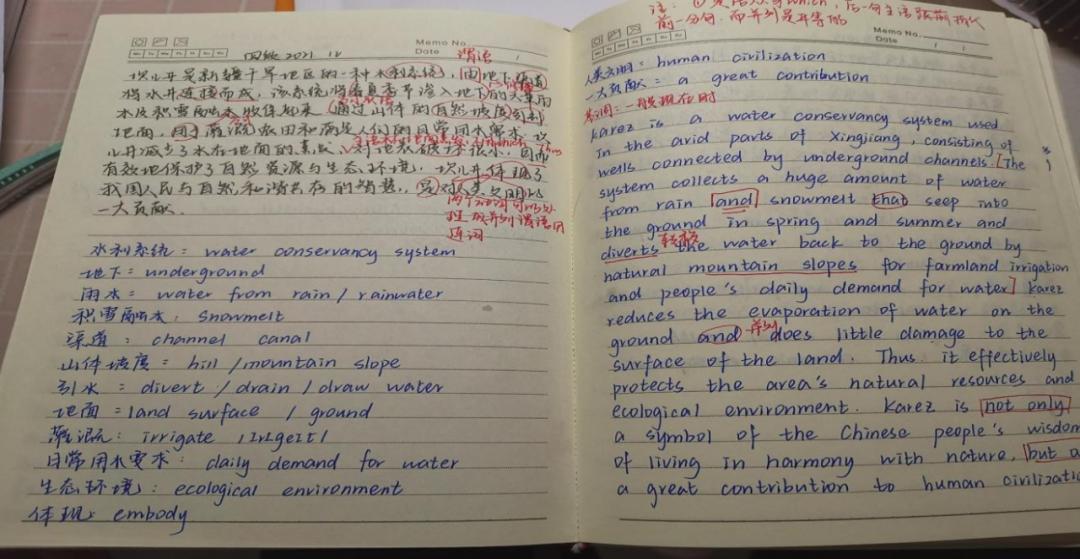 Memo No.
Date
四级 2021. 12
谓语
坎儿井是新疆干旱地区的一种水利系统，由地下渠道
将水井连接而成，该系统将春夏季节渗入地下的大量雨
水及积雪融水收集起来，通过山体的自然坡度引到
地面，用于灌溉农田和满足人们的日常用水需求。坎
儿井减少了水在地面的蒸发，对地表破坏很小，因而
有效地保护了自然资源与生态环境，坎儿井体现了
我国人民与自然和谐共存的智慧，是对人类文明的
一大贡献。
两个动词可以处
理成并列谓语用
连词
水利系统：water conservancy system
地下：underground
雨水：water from rain / rainwater
积雪融水：snowmelt
渠道：channel canal
山体坡度：hill / mountain slope
引水：divert / drain / draw water
地面：land surface / ground
灌溉：irrigate
日常用水要求：daily demand for water
生态环境：ecological environment
体现：embody
注：
前一分句，而并列是并等的
Memo No.
Date
人类文明：human civilization
一大贡献：a great contribution
一般现在时
Karez is a water conservancy system used
in the arid parts of Xingjiang, consisting of
wells connected by underground channels. [The
system collects a huge amount of water
from rain and snowmelt that seep into
the ground in spring and summer and
diverts the water back to the ground by
natural mountain slopes for farmland irrigation
and people's daily demand for water] Karez
reduces the evaporation of water on the
ground and does little damage to the
surface of the land. Thus it effectively
protects the area's natural resources and
ecological environment. Karez is not only
a symbol of the Chinese people's wisdom
of living in harmony with nature, but a
a great contribution to human civilizatio